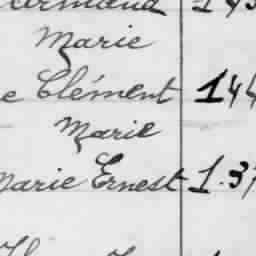 Marie
e Clément 144
Marie
Marie Ernest 1.37